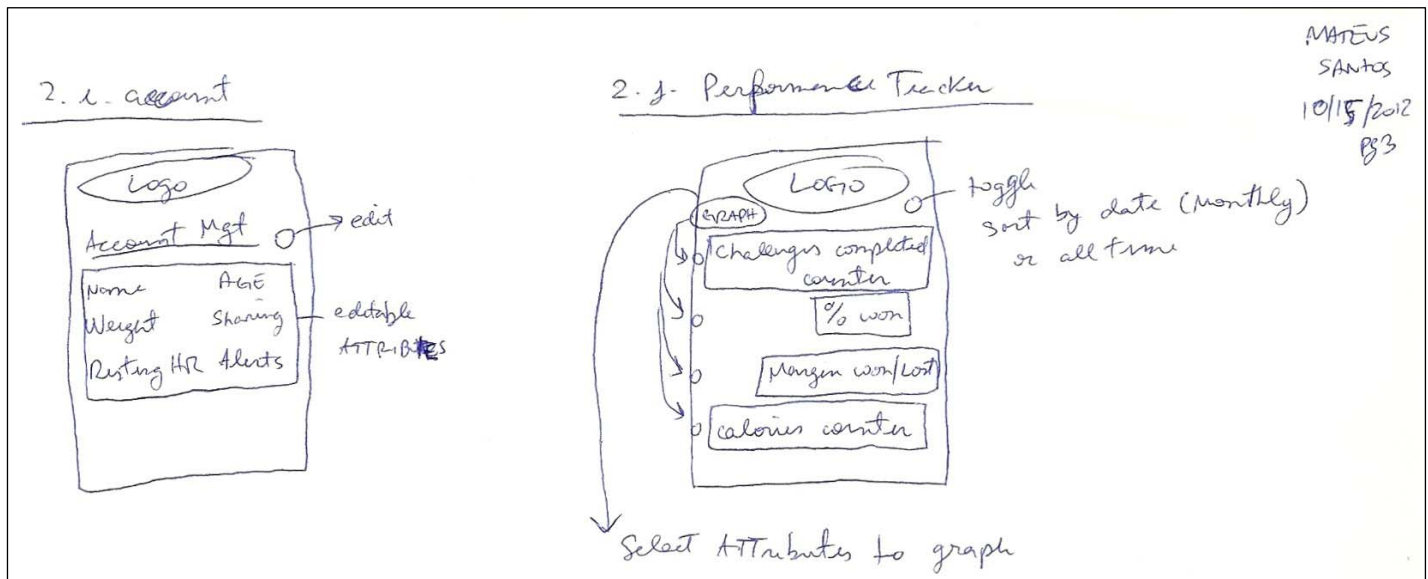 MATEUS
SANTOS
10/15/2012
pg3
2. i. account
Logo
Account Mgt
edit
Name AGE
Weight Sharing
Resting HR Alerts
editable
ATTRIBTES
2. j. Performance Tracker
LOGO
GRAPH
toggle
sort by date (Monthly)
or all time
Challenges completed
counter
% won
Margin won/Lost
calories counter
Select ATTributes to graph